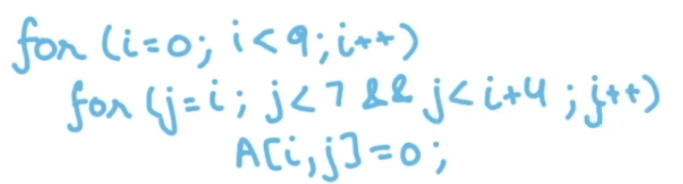 for (i=0; i<9; i++)
for (j=i; j<7 && j<i+4; j++)
A[i,j]=0;